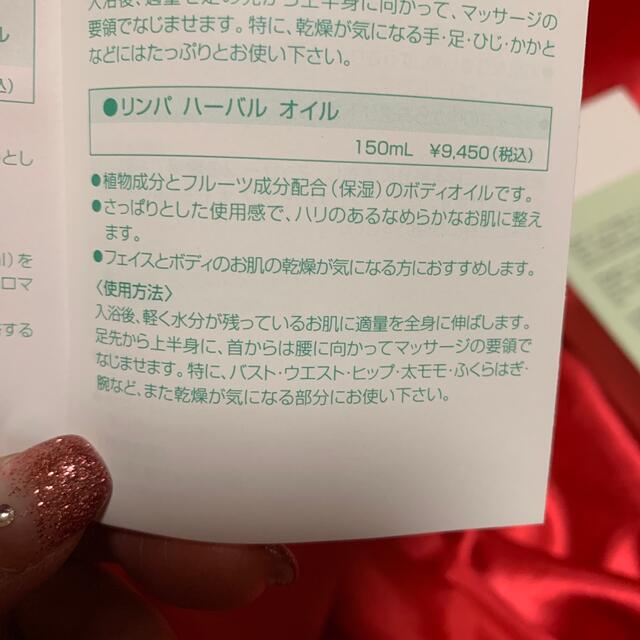 入浴後、適量を足の先から上半身に向かって、マッサージの
要領でなじませます。特に、乾燥が気になる手・足・ひじ・かかと
などにはたっぷりとお使い下さい。
●リンパ ハーバル オイル
150mL ¥9,450(税込)
●植物成分とフルーツ成分配合(保湿)のボディオイルです。
●さっぱりとした使用感で、ハリのあるなめらかなお肌に整え
ます。
●フェイスとボディのお肌の乾燥が気になる方におすすめします。
〈使用方法〉
入浴後、軽く水分が残っているお肌に適量を全身に伸ばします。
足先から上半身に、首からは腰に向かってマッサージの要領で
なじませます。特に、バスト・ウエスト・ヒップ・太モモ・ふくらはぎ・
腕など、また乾燥が気になる部分にお使い下さい。
ル
込)
とし
を
ロマ
する